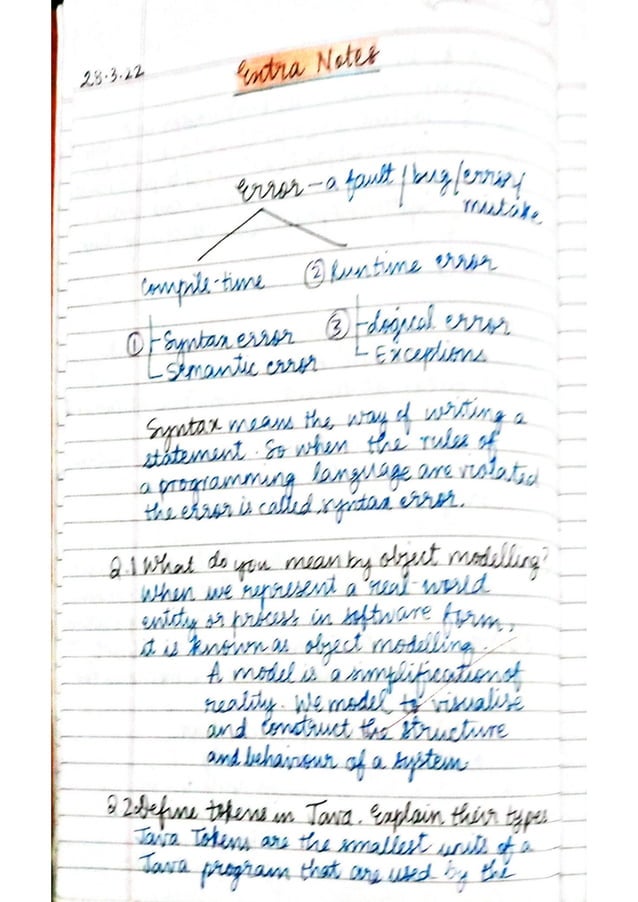 28.3.22
Extra Notes
Error - a fault / bug / error /
mistake
Compile-time
② Runtime error
① Syntax error
Semantic error
③ Logical error
Exceptions
Syntax means the way of writing a
statement. So when the rules of
a programming language are violated
the error is called syntax error.
Q.1 What do you mean by object modelling?
When we represent a real-world
entity or process in software form,
it is known as object modelling.
A model is a simplification of
reality. We model to visualise
and construct the structure
and behaviour of a system
Q 2. Define tokens in Java. Explain their types
Java Tokens are the smallest units of a
Java program that are used by the